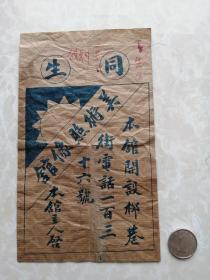 同生
美術照像館
本館開設柳巷
街電話一百三
十六號
本館主人啓